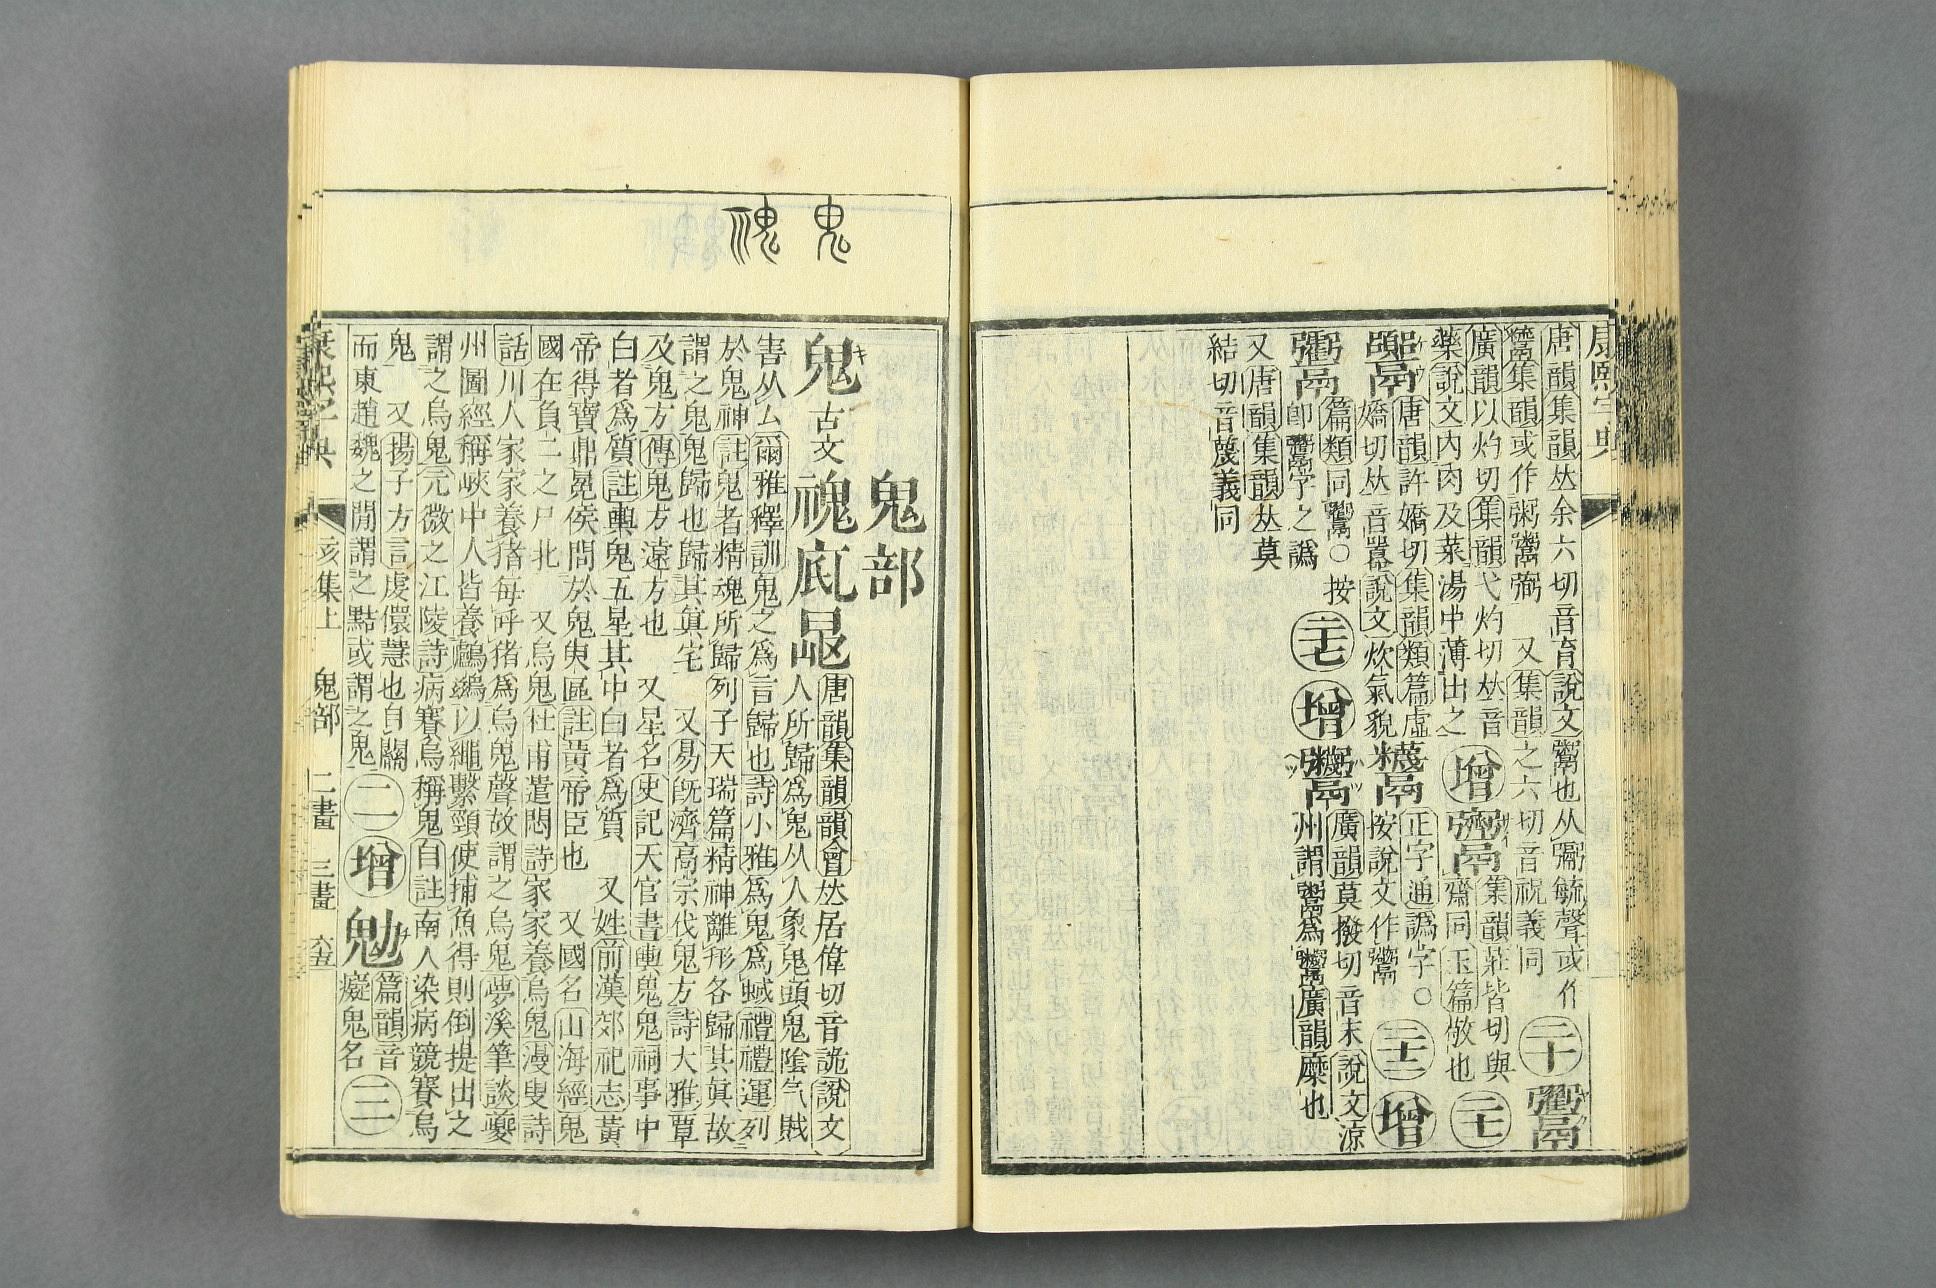 康熙字典
唐韻集韻𠀤余六切音育說文鬻也从䰜毓聲或作
鬻集韻或作粥鬻 又集韻之六切音祝義同
二十
廣韻以灼切集韻弋灼切𠀤音
藥說文內肉及菜湯中薄出之
增
集韻莊皆切與
齋同玉篇敬也
二十一
唐韻許嬌切集韻類篇虛
嬌切𠀤音囂說文炊氣貌
正字通譌字○
按說文作
二十二
增
篇類同○按
卽字之譌
二十七
增
廣韻莫撥切音末說文涼
州謂為廣韻糜也
又唐韻集韻𠀤莫
結切音蔑義同
鬼 䰡
鬼部
鬼 古文 䰡
唐韻集韻韻會𠀤居偉切音詭說文
人所歸爲鬼从人象鬼頭鬼陰气賊
害从厶爾雅釋訓鬼之爲言歸也詩小雅爲鬼爲蜮禮禮運列
於鬼神註鬼者精魂所歸列子天瑞篇精神離形各歸其眞故
謂之鬼鬼歸也歸其眞宅 又易旣濟高宗伐鬼方詩大雅覃
及鬼方傳鬼方遠方也 又星名史記天官書輿鬼鬼祠事中
白者爲質註輿鬼五星其中白者爲質 又姓前漢郊祀志黃
帝得寶鼎冕侯問於鬼臾區註黃帝臣也 又國名山海經鬼
國在負二之尸北 又烏鬼杜甫遣悶詩家家養烏鬼漫叟詩
話川人家家養猪每呼猪爲烏鬼聲故謂之烏鬼夢溪筆談夔
州圖經稱峽中人皆養鸕鷀以繩繫頸使捕魚得則倒提出之
謂之烏鬼元微之江陵詩病賽烏稱鬼自註南人染病競賽烏
鬼 又揚子方言虔儇慧也自關
而東趙魏之閒謂之黠或謂之鬼
二
增
篇韻音
癡鬼名
三
康熙字典 亥集上 鬼部 二畫 三畫 六五